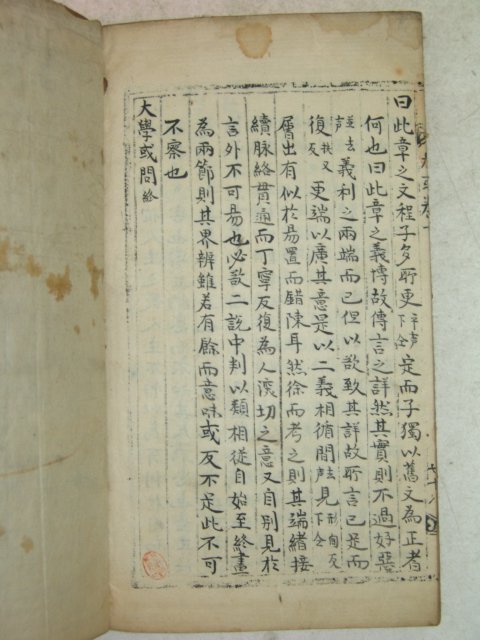 曰此章之文程子多所更平声下仝定而子獨以舊文為正者
何也曰此章之義博故傳言之詳然其實則不過好惡
並去声義利之兩端而已但以欲致其詳故所言已足而
復扶又反更端以廣其意是以二義相循間去声見形甸反下仝
層出有似於易置而錯陳耳然徐而考之則其端緒接
續脉絡貫通而丁寧反復為人深切之意又自別見於
言外不可易也必欲二說中判以類相從自始至終畫
為兩節則其界辨雖若有餘而意味或反不足此不可
不察也
大學或問終